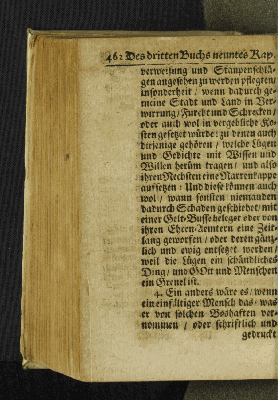 462 Des dritten Buchs neuntes Kap.
verweisung und Staupenschlä-
gen angesehen zu werden pflegten/
insonderheit / wenn dadurch ge-
meine Stadt und Land in Ver-
wirrung/ Furcht und Schrecken/
oder auch wol in vergebliche Ko-
sten gesetzt würde: zu denen auch
diejenige gehören / welche Lügen
und Gedichte mit Wissen und
Willen herüm tragen/ und also
ihren Nechsten eine Narrenkappe
aufsetzen: Und diese können auch
wol / wann sonsten niemanden
dadurch Schaden geschiehet/ mit
einer Gelt-Busse beleget oder von
ihren Ehren-Aemtern eine Zeit-
lang geworfen / oder deren gänz-
lich und ewig entsetzt werden/
weil die Lügen ein schändliches
Ding/ und GOtt und Menschen
ein Greuel ist.
4. Ein anders wäre es/ wenn
ein einfältiger Mensch das/ was
er von solchen Boshaften ver-
nommen / oder schriftlich und
gedruckt